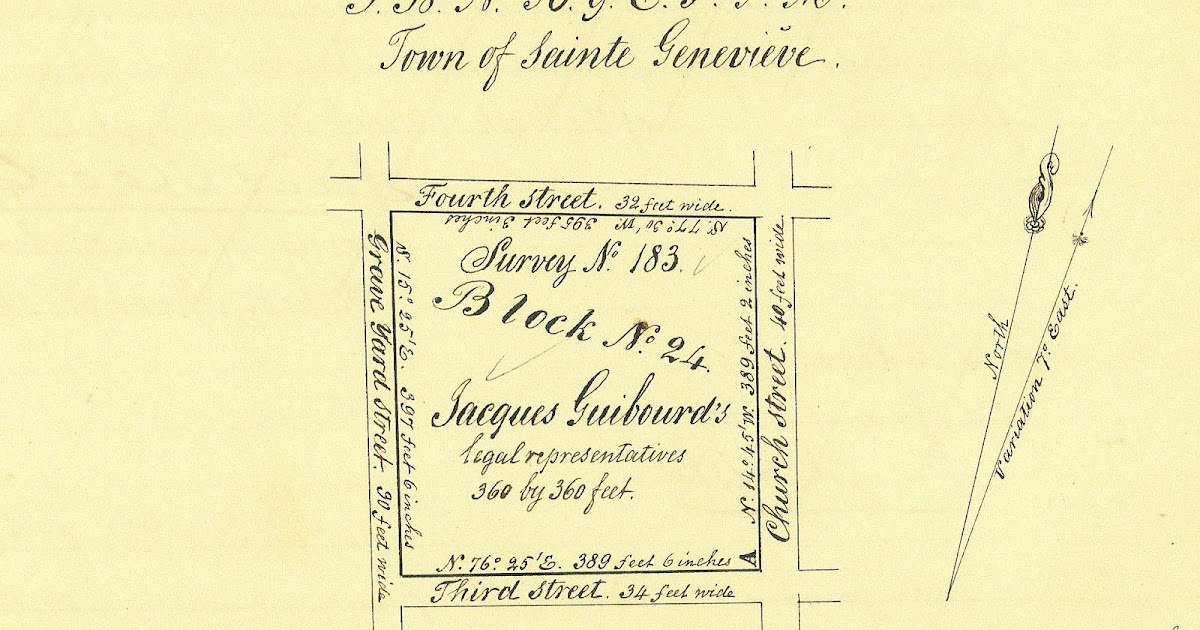 T. 38. N. R. 9. E. 5. P. M.
Town of Sainte Geneviève.
Fourth street. 32 feet wide.
S. 77° 30' W. 395 feet 3 inches
Survey No. 183.
Block No. 24.
Jacques Guibourd's
legal representatives
360 by 360 feet.
N. 76° 25' E. 389 feet 6 inches
A
Third street. 34 feet wide
Grave Yard street. 30 feet wide
S. 15° 25' E. 397 feet 6 inches
N. 14° 45' W. 389 feet 2 inches
Church street. 40 feet wide.
North
Variation 7° East.